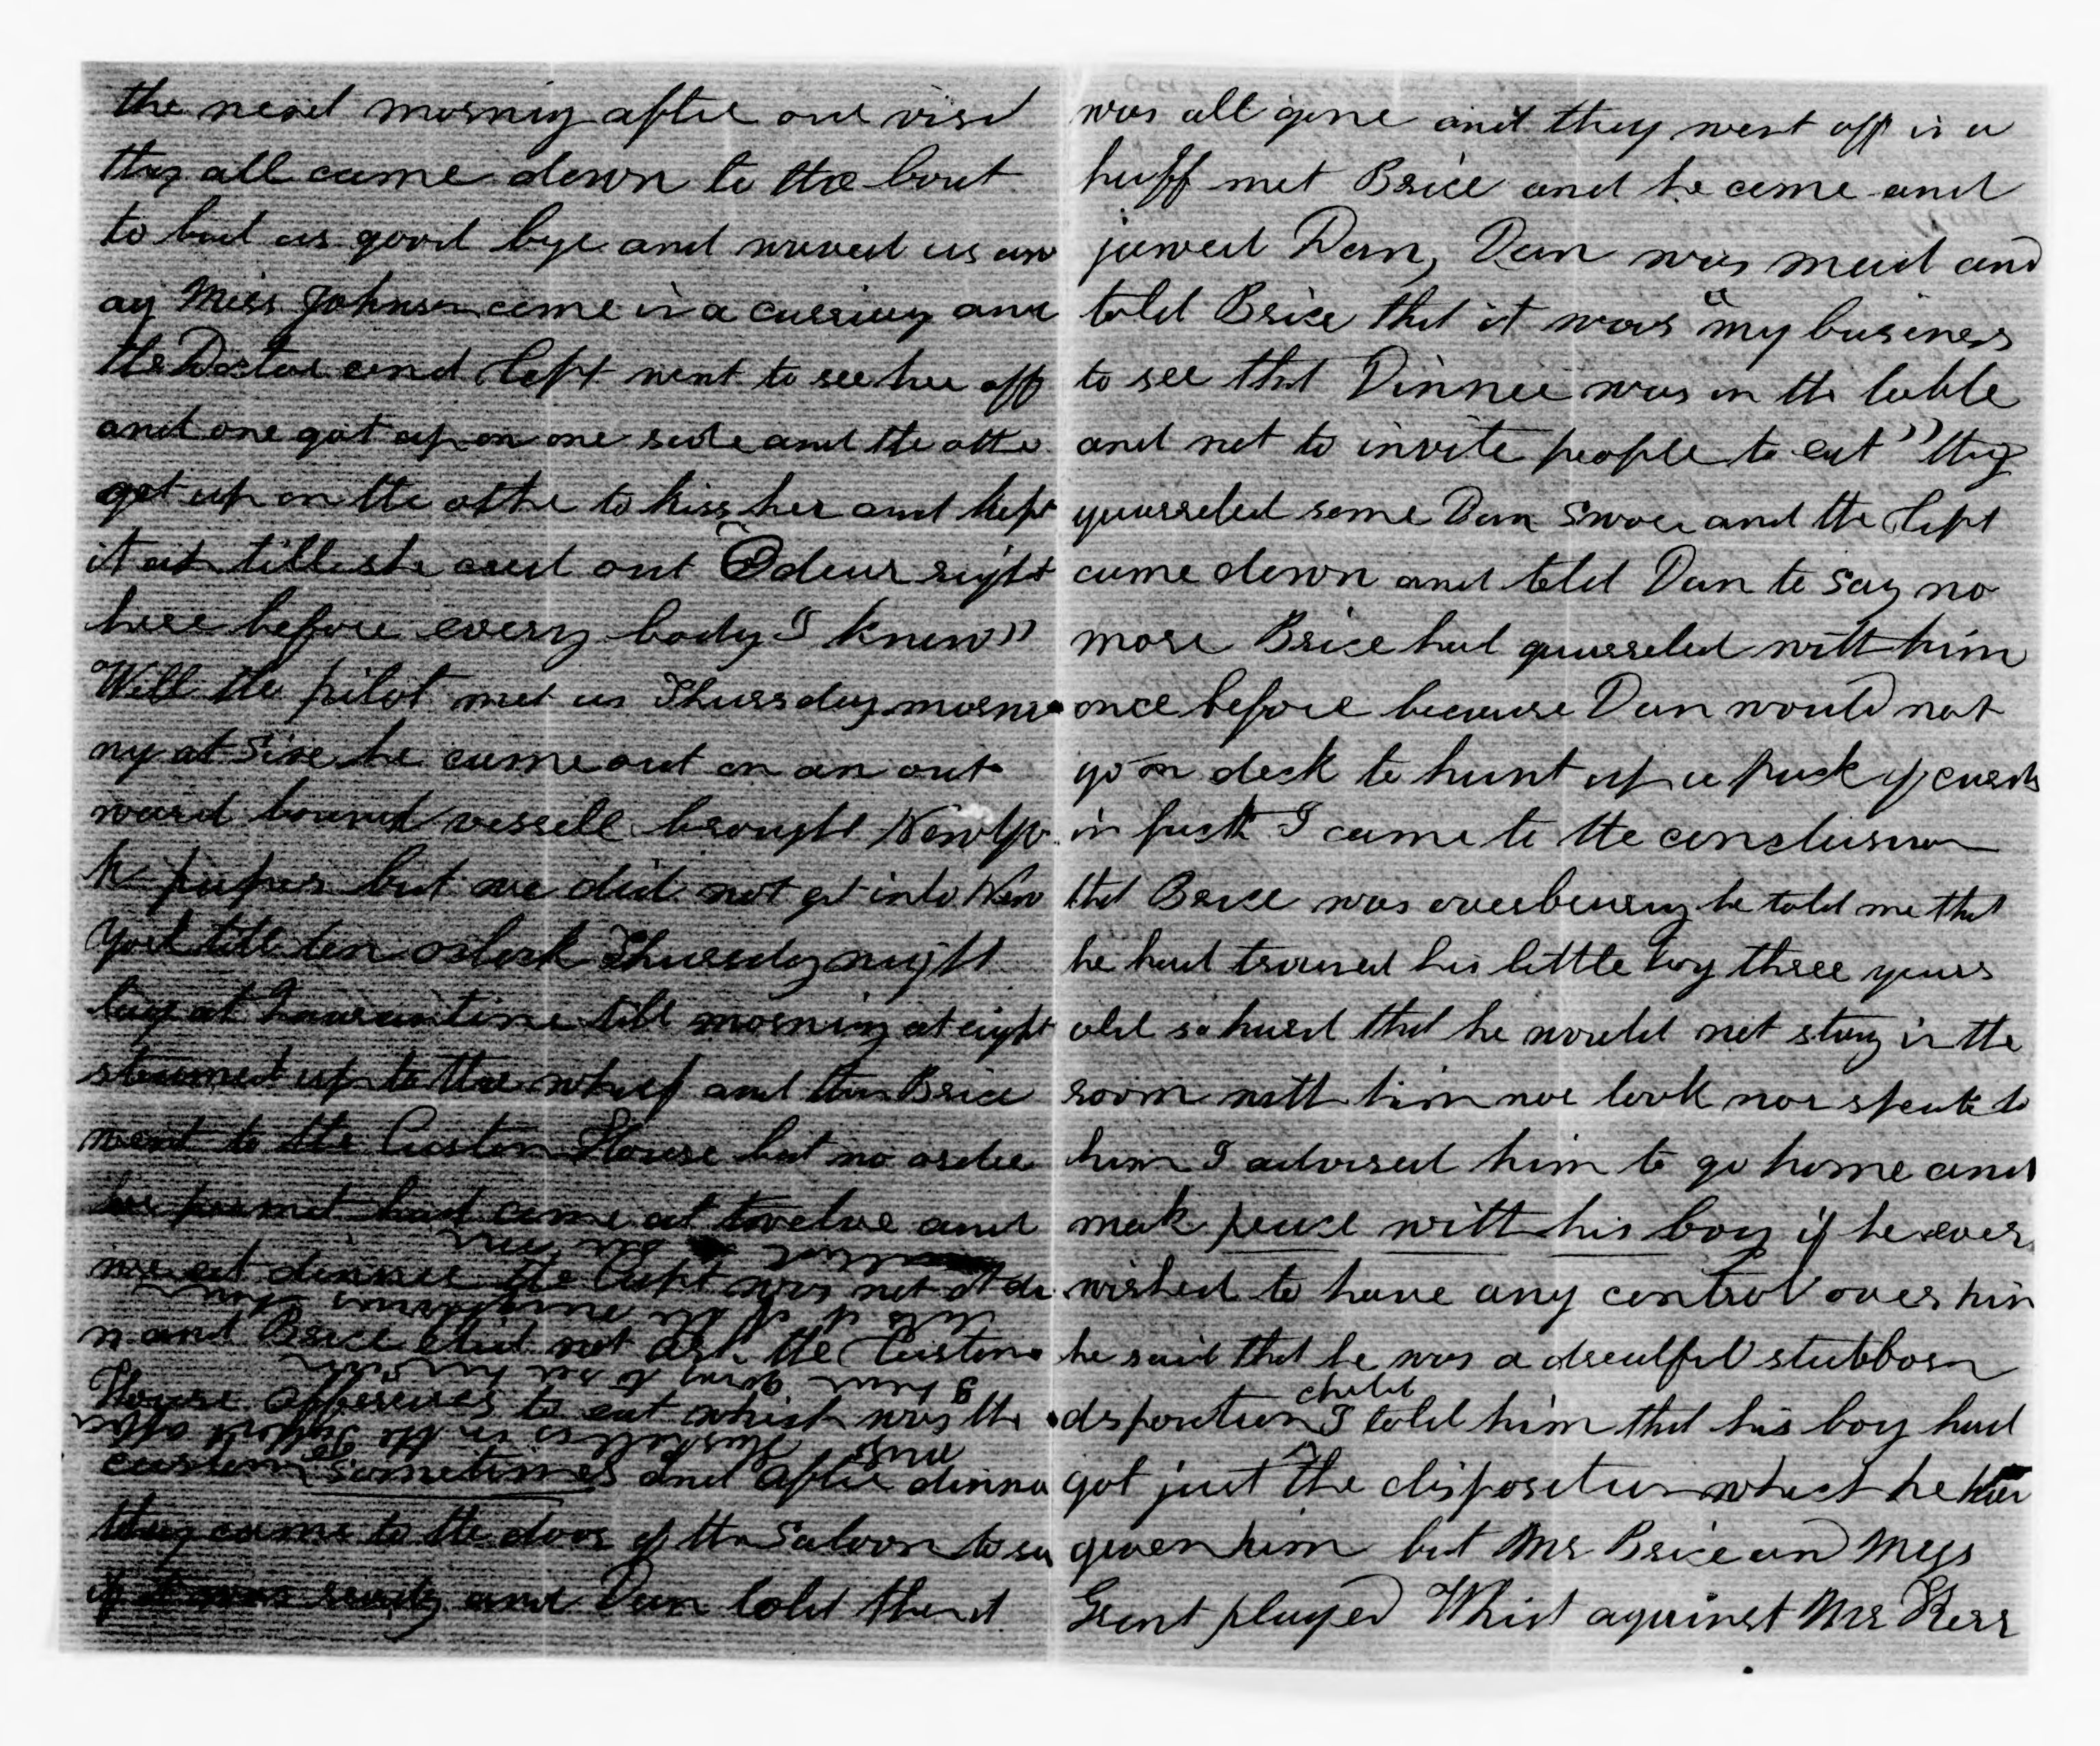 the next morning after our visit
they all came down to the boat
to bid us good bye and waved us aw
ay Miss Johnson came in a carriag and
the Doctor and Capt went to see her off
and one got up on one side and the othe
got up on the othe to kiss her and kept
it up till she cried out "O dear right
here before every body I know"
Well the pilot met us Thursday morni
ny at Five he came out on an out
ward bound vessell brought New Yo
k papers but we did not get into New
York till ten oclock Thursday night
lay at Quarantine till morning at eight
steamed up to the wharf and then Brice
went to the Custom House but no order
permit had came at twelve and
we eat dinner the Capt was not at di
n and Brice did not ask the Custom
House officeres to eat which was the
custom sometimes and after dinne
they came to the door of the Saloon to see
if it was ready and Dan told them it
was all gone and they went off in a
huff met Brice and he came and
jawed Dan, Dan was mad and
told Brice that it was "my business
to see that Dinner was on the table
and not to invite people to eat" they
quarreled some Dan swore and the Capt
came down and told Dan to say no
more Brice had quarreled with him
once before because Dan would not
go on deck to hunt up a pack of cards
in fact I came to the conclusion
that Brice was overbearing he told me that
he had trained his little boy three years
old so hard that he would not stay in the
room with him nor look nor speak to
him I advised him to go home and
mak peace with his boy if he ever
wished to have any control over him
he said that he was a dreadful stubborn
disposition child I told him that his boy had
got just the disposition which he had
given him but Mr Brice and Mrs
Grent played Whist against Mrs Kerr